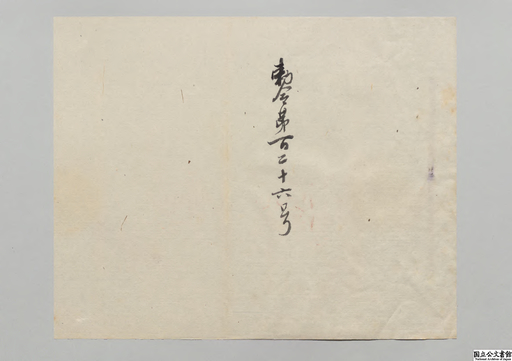 勅令第百二十六号
国立公文書館
National Archives of Japan